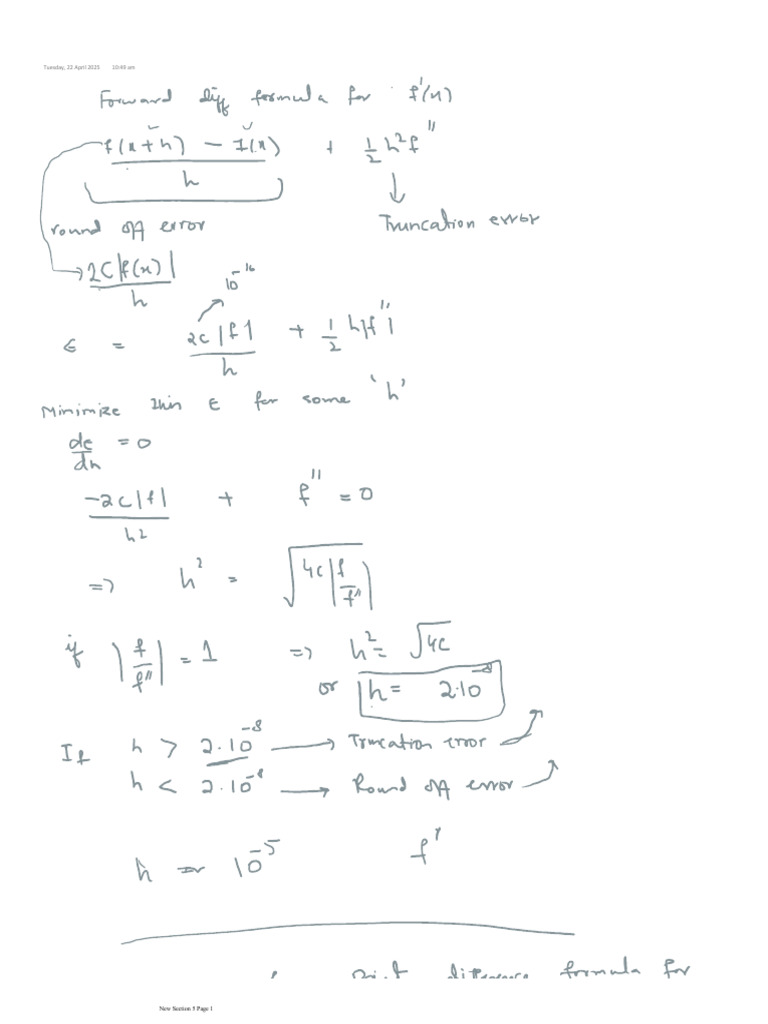 Tuesday, 22 April 2025 10:49 am
Forward diff formula for f'(x)
f(x+h) - f(x) / h + 1/2 h² f''
round off error Truncation error
2C|f(x)| / h 10⁻¹⁶
ϵ = 2C|f| / h + 1/2 h|f''|
Minimize this ϵ for some 'h'
dϵ/dh = 0
-2C|f| / h² + f'' = 0
=> h² = √(4C|f/f''|)
if |f/f''| = 1 => h² = √4C
or h = 2·10⁻⁸
If h > 2·10⁻⁸ → Truncation error
h < 2·10⁻⁸ → Round off error
h = 10⁻⁵ f'
difference formula for
New Section 5 Page 1